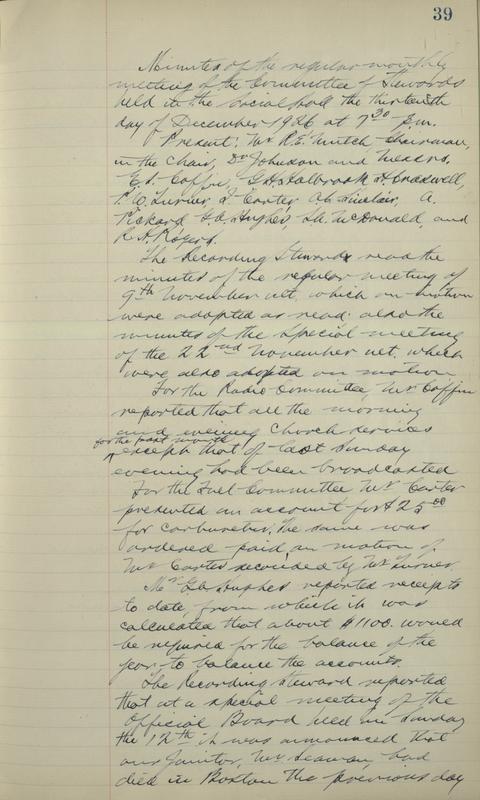 39
Minutes of the regular monthly
meeting of the Committee of Stewards
held in the Social Hall the thirteenth
day of December 1926 at 7³⁰ P.m.
Present: Mr R.E. Mutch Chairman,
in the Chair, Dr Johnson and Messrs.
E.S. Coffin, G.H. Holbrook, H. Cradwell,
P.W. Turner, J. Carter, Sinclair, A.
Pickard, Hughes, McDonald, and
R.H. Rogers.
The Recording Steward read the
minutes of the regular meeting of
9th November ult. which on motion
were adopted as read: also the
minutes of the special meeting
of the 22nd November ult. which
were also adopted on motion
For the Radio Committee, Mr Coffin
reported that all the morning
and evening Church services
for the past month
except that of last Sunday
evening had been broadcasted
For the Fuel Committee Mr Carter
presented an account for $25⁰⁰
for carburetor. The same was
ordered paid, on motion of
Mr Carter seconded by Mr Turner.
Mr Hughes reported receipts
to date, from which it was
calculated that about $1100. would
be required for the balance of the
year, to balance the accounts.
The Recording Steward reported
that at a special meeting of the
Official Board held on Sunday
the 12th it was announced that
our Janitor, Mr Seaman, had
died in Boston the previous day